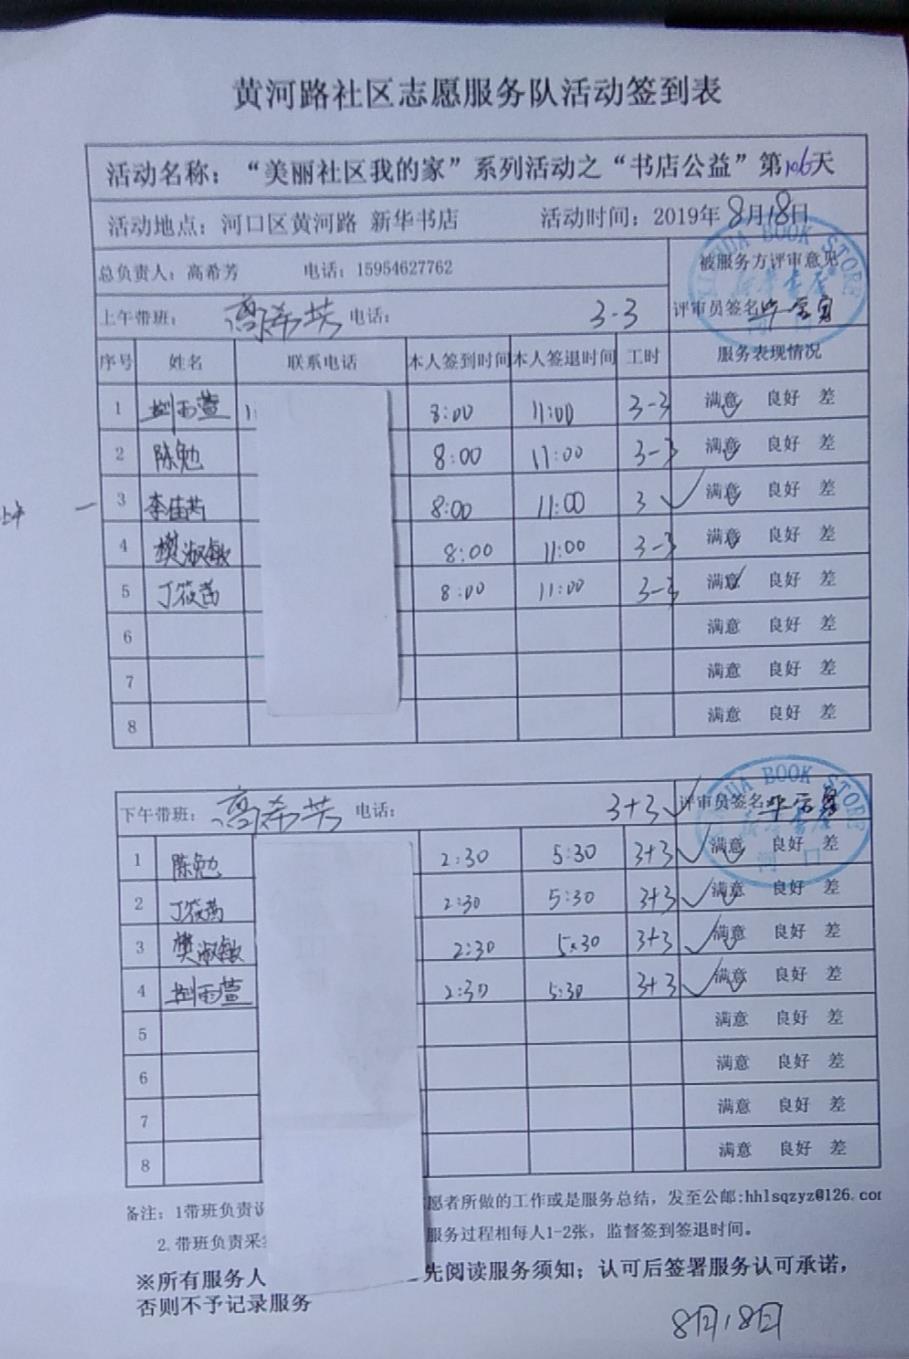 黄河路社区志愿服务队活动签到表
活动名称：“美丽社区我的家”系列活动之“书店公益”第106天
活动地点：河口区黄河路 新华书店 活动时间：2019年8月18日
总负责人：高希芳 电话：15954627762 被服务方评审意见
上午带班： 高希芳 电话： 3-3 评审员签名
序号 姓名 联系电话 本人签到时间 本人签退时间 工时 服务表现情况
1 雨萱 8:00 11:00 3-3 满意 良好 差
2 陈勉 8:00 11:00 3-3 满意 良好 差
上午 3 李佳芮 8:00 11:00 3 满意 良好 差
4 樊淑敏 8:00 11:00 3-3 满意 良好 差
5 丁筱茜 8:00 11:00 3-3 满意 良好 差
6 满意 良好 差
7 满意 良好 差
8 满意 良好 差
下午带班： 高希芳 电话： 3+3 评审员签名
XINHUA BOOK STORE
新华书店
河口
1 陈勉 2:30 5:30 3+3 满意 良好 差
2 丁筱茜 2:30 5:30 3+3 满意 良好 差
3 樊淑敏 2:30 5:30 3+3 满意 良好 差
4 雨萱 2:30 5:30 3+3 满意 良好 差
5 满意 良好 差
6 满意 良好 差
7 满意 良好 差
8 满意 良好 差
备注：1带班负责 愿者所做的工作或是服务总结，发至公邮:hhlsqzyz@126.com
2.带班负责采 服务过程相每人1-2张，监督签到签退时间。
※所有服务人 先阅读服务须知；认可后签署服务认可承诺，
否则不予记录服务
8月18日